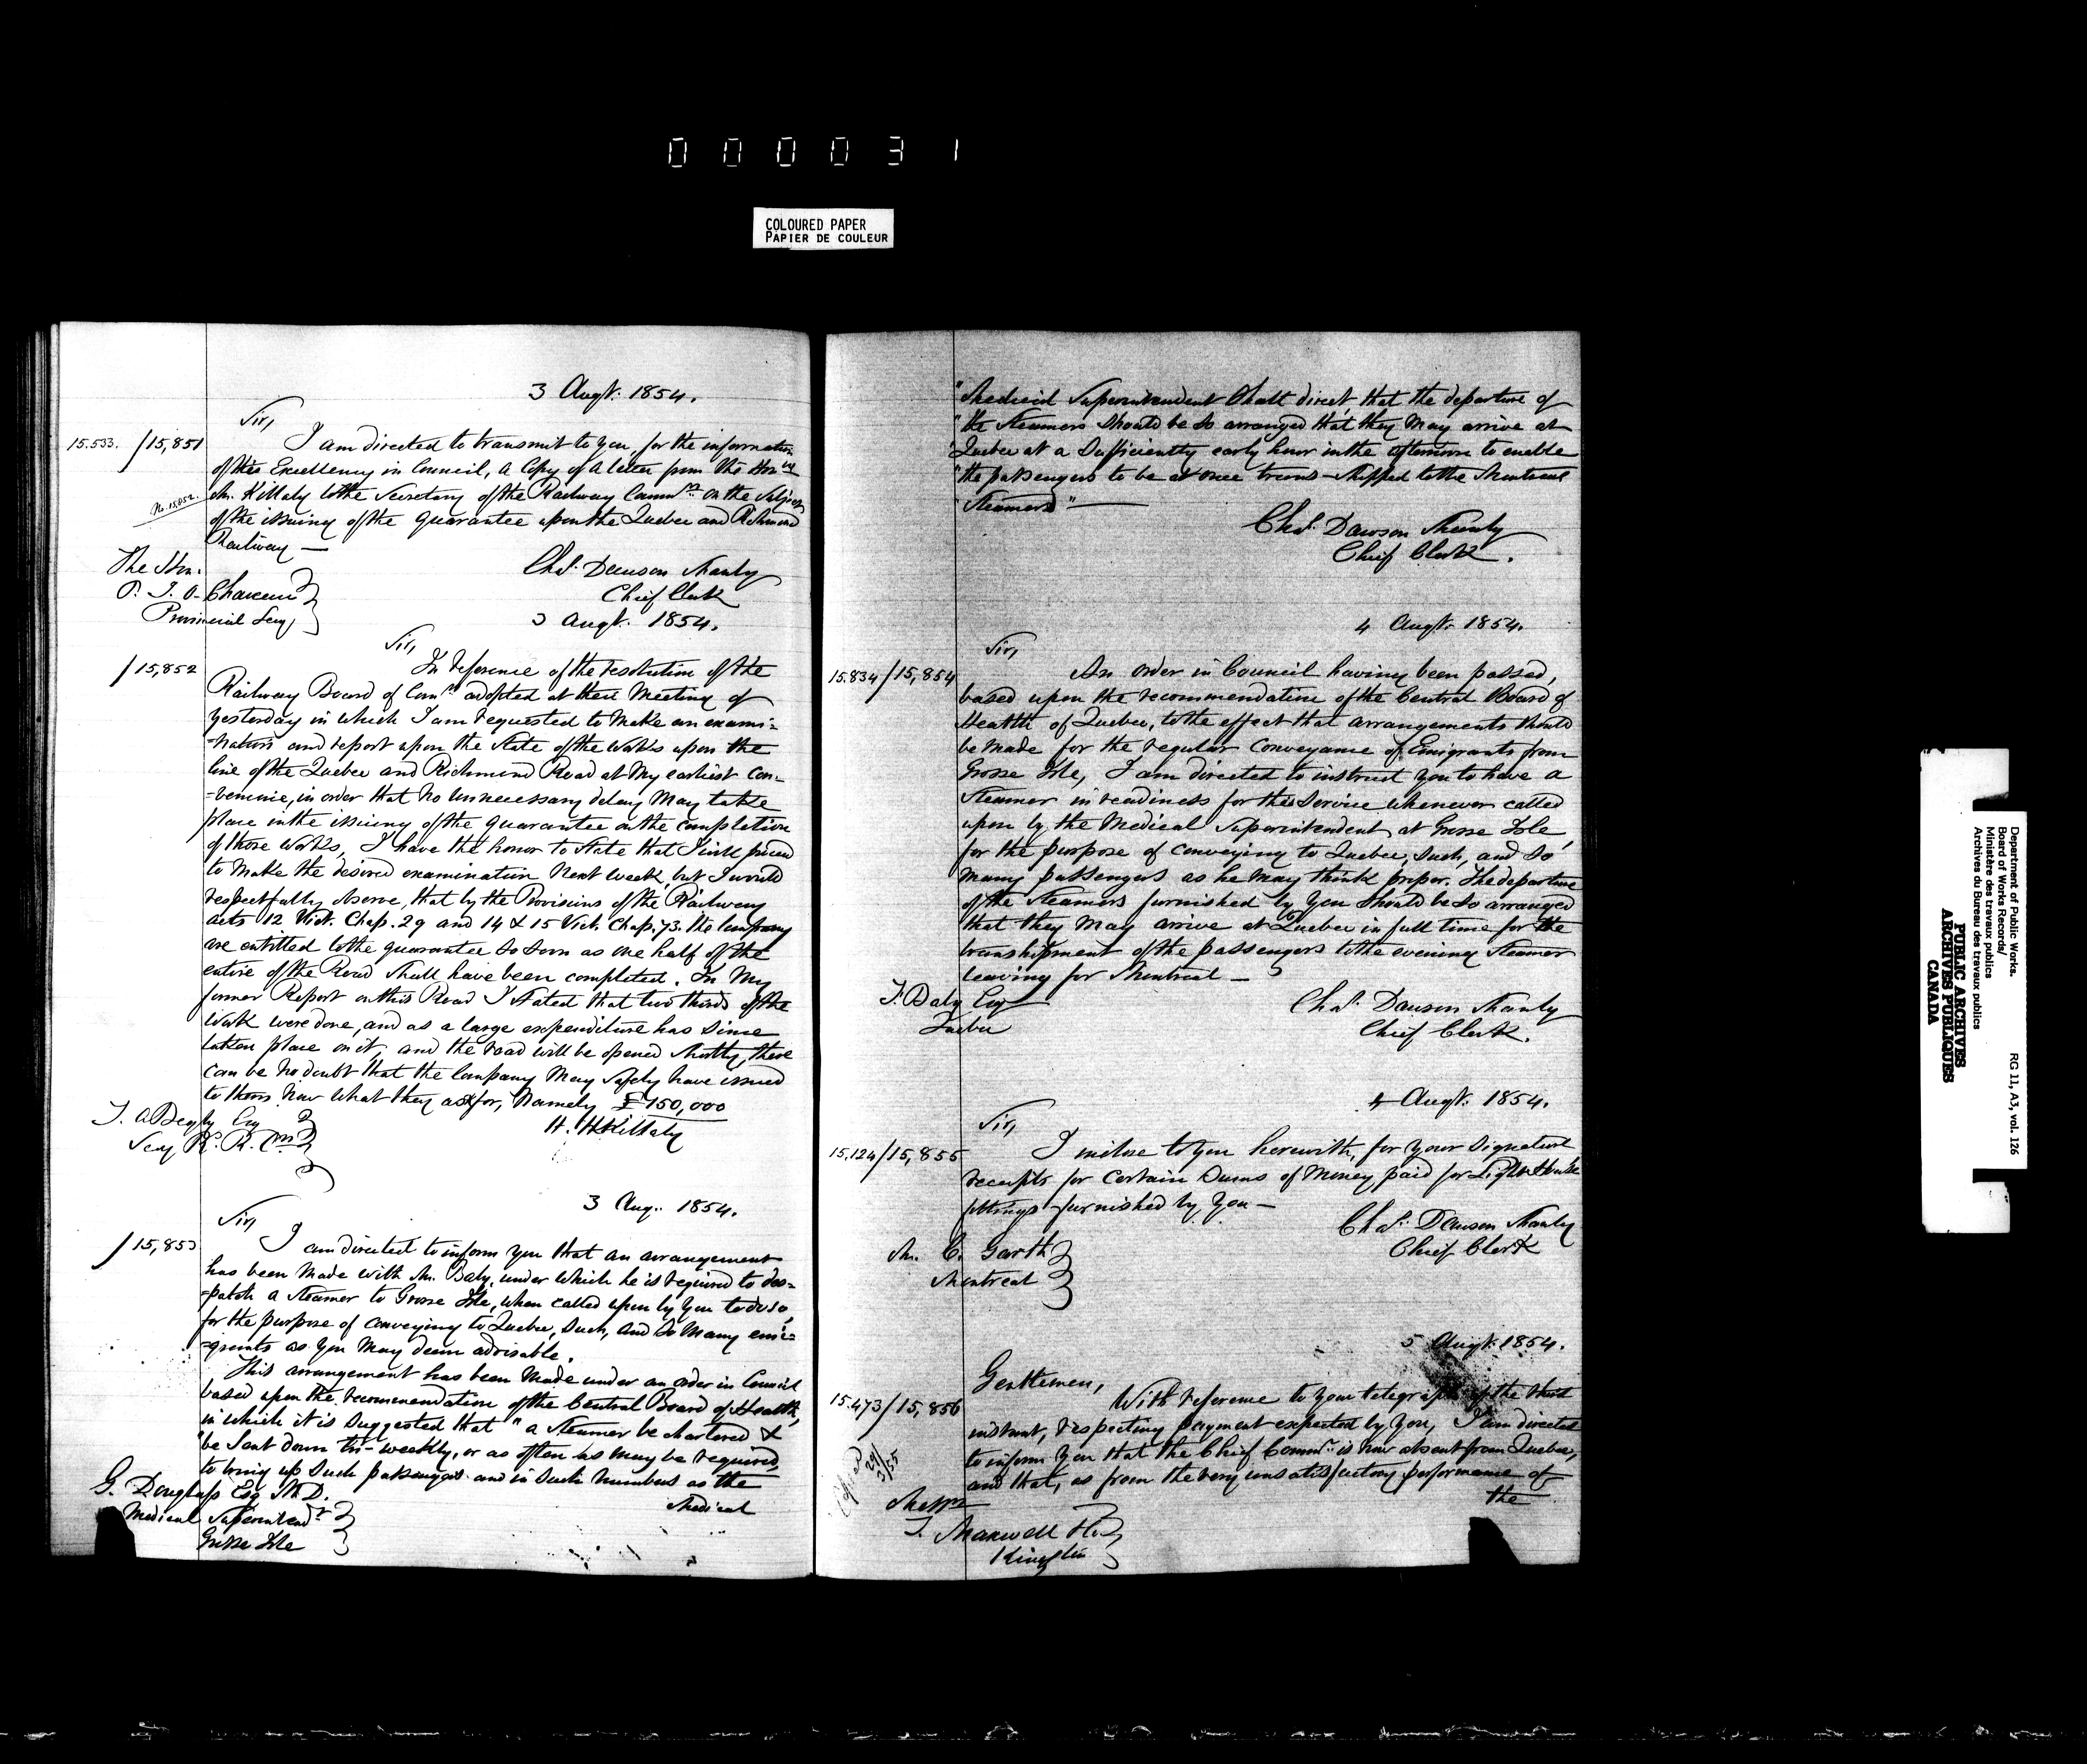 000031
COLOURED PAPER
PAPIER DE COULEUR
3 Augt. 1854.
Sir,
15.533. /15,851
I am directed to transmit to you, for the information
of His Excellency in Council, a Copy of a letter from the Honble
Mr. Killaly to the Secretary of the Railway Commrs on the subject
No. 15,852.
of the issuing of the guarantee upon the Quebec and Richmond
Railway —
The Hon.
P. J. O. Chauveau
Provincial Secy
Chas. Dawson Shanly
Chief Clerk
3 Augt. 1854.
Sir,
/15,852
In reference of the resolution of the
Railway Board of Comrs adopted at their Meeting of
yesterday in which I am requested to make an exami-
-nation and report upon the State of the Works upon the
line of the Quebec and Richmond Road at my earliest con-
-venience, in order that no unnecessary delay may take
place in the issuing of the guarantee on the completion
of those Works, I have the honor to State that I will proceed
to make the desired examination next week, but I would
respectfully observe, that by the Provisions of the Railway
acts 12 Vict. Chap. 29 and 14 & 15 Vict. Chap. 73. the Company
are entitled to the guarantee so soon as one half of the
entire of the Road shall have been completed. In my
former Report on this Road I stated that two thirds of the
Work were done, and as a large expenditure has since
taken place on it, and the road will be opened shortly, there
can be no doubt that the Company may safely have issued
to them now what they ask for, namely £150,000
T. A. Begly Esq
Secy R. R. Cmrs
H. H. Killaly
3 Aug. 1854.
Sir,
/15,853
I am directed to inform you that an arrangement
has been made with Mr. Baby, under which he is required to des-
-patch a steamer to Grosse Isle, when called upon by you to do so,
for the purpose of conveying to Quebec, such, and so many emi-
-grants as you may deem advisable.
This arrangement has been made under an order in Council
based upon the recommendation of the Central Board of Health,
in which it is suggested that "a steamer be chartered &
"be sent down tri-weekly, or as often as may be required,
to bring up such passengers and in such numbers as the
Medical
G. Douglass Esq M.D.
Medical Superintendt
Grosse Isle
"Medical Superintendent shall direct, that the departure of
"the Steamers should be so arranged that they may arrive at
"Quebec at a sufficiently early hour in the afternoon to enable
"the passengers to be at once trans-shipped to the Montreal
"Steamers" —
Chas. Dawson Shanly
Chief Clerk.
4 Augt. 1854.
Sir,
15.834/15,854
An order in Council having been passed,
based upon the recommendation of the Central Board of
Health of Quebec, to the effect that arrangements should
be made for the regular conveyance of Emigrants from
Grosse Isle, I am directed to instruct you to have a
Steamer in readiness for this service whenever called
upon by the Medical Superintendent at Grosse Isle,
for the purpose of conveying to Quebec, such, and so
many passengers as he may think proper. The departure
of the Steamers furnished by you should be so arranged
that they may arrive at Quebec in full time for the
transhipment of the passengers to the evening Steamer
leaving for Montreal —
F. Baby Esq
Quebec
Chas. Dawson Shanly
Chief Clerk.
4 Augt. 1854.
Sir,
15.124/15,855
I enclose to you herewith, for your signature
receipts for certain sums of money paid for Light House
fittings furnished by you —
Chas. Dawson Shanly
Chief Clerk
Mr. C. Garth
Montreal
5 Augt. 1854.
Gentlemen,
15.473/15,856
With reference to your telegraph of the third
instant, respecting payment expected by you, I am directed
to inform you that the Chief Commr. is now absent from Quebec,
and that, as from the very unsatisfactory performance of
the
Messrs
J. Maxwell
Kingston
Department of Public Works.
Board of Works Records/
Ministère des travaux publics
Archives du Bureau des travaux publics
RG 11, A3, vol. 126
PUBLIC ARCHIVES
ARCHIVES PUBLIQUES
CANADA